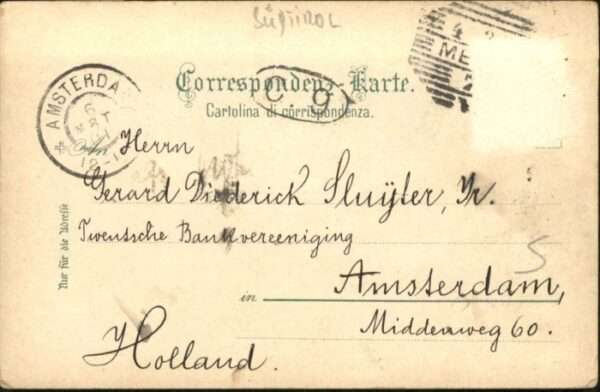 SÜDTIROL
4
ME
AMSTERDA
6
12-1
Correspondenz-Karte.
Cartolina di corrispondenza.
C 9
An Herrn
Gerard Diederick Sluÿter, Jr.
Twentsche Bankvereeniging
Nur für die Adresse
5
in Amsterdam,
Middenweg 60.
Holland.